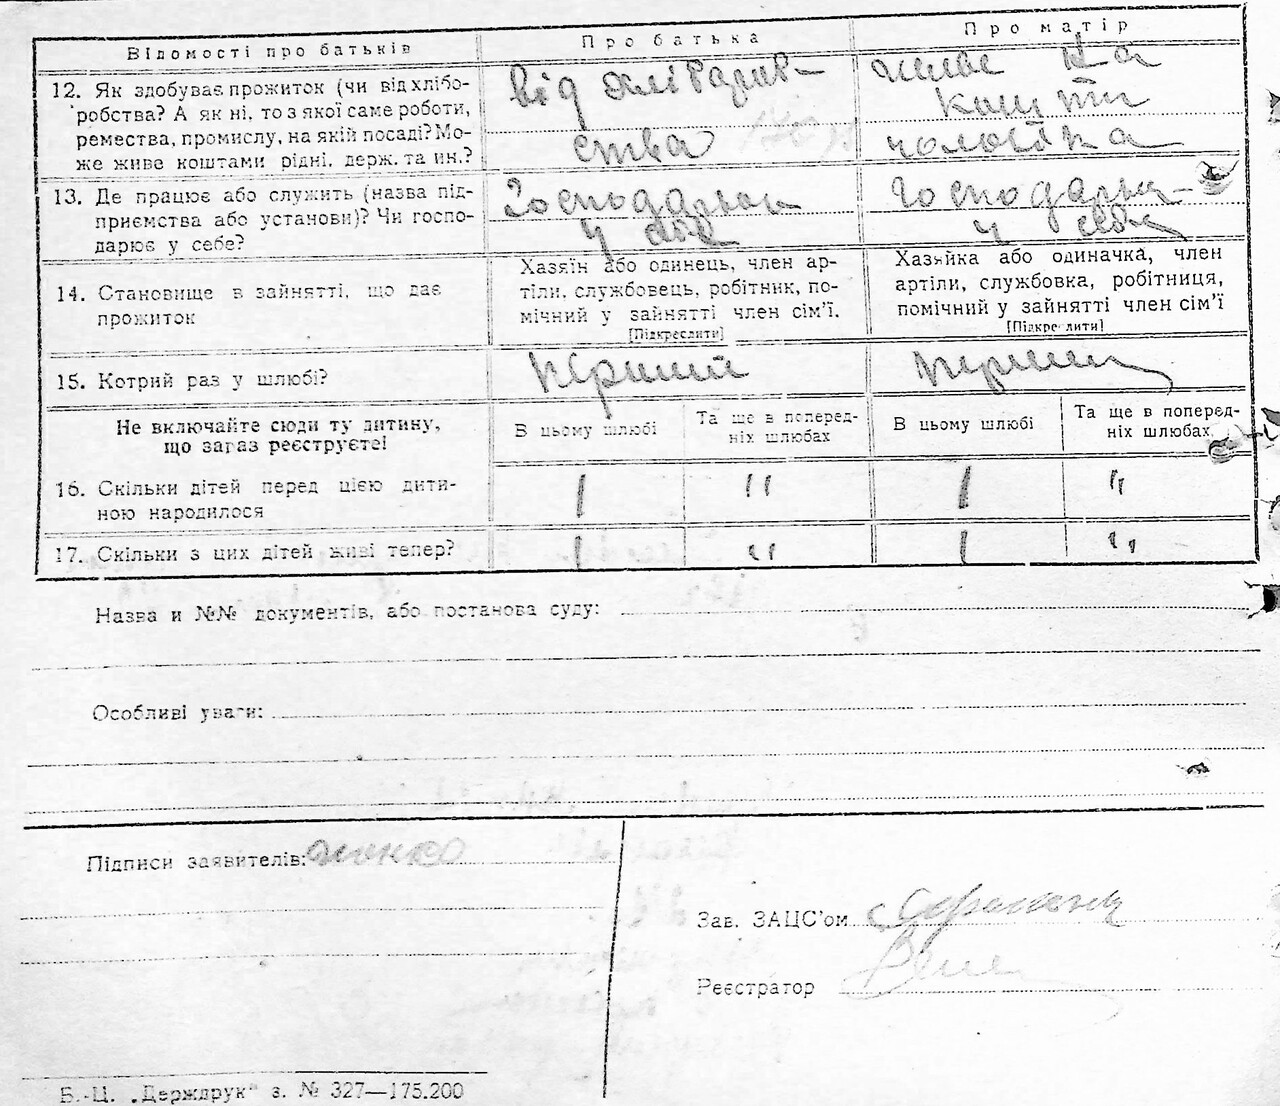 Відомості про батьків
Про батька
Про матір
12. Як здобуває прожиток (чи від хлібо-
робства? А як ні, то з якої саме роботи,
ремества, промислу, на якій посаді? Мо-
же живе коштами рідні, держ. та ин.?
від хліборобс-
ства
живе на
кошти
чоловіка
13. Де працює або служить (назва під-
приємства або установи)? Чи госпо-
дарює у себе?
Господарює
у себе
Господарює
у себе
14. Становище в зайнятті, що дає
прожиток
Хазяїн або одинець, член ар-
тіли, службовець, робітник, по-
мічний у зайнятті член сім'ї.
[Підкреслити]
Хазяйка або одиначка, член
артіли, службовка, робітниця,
помічний у зайнятті член сім'ї
[Підкреслити]
15. Котрий раз у шлюбі?
перший
перший
Не включайте сюди ту дитину,
що зараз реєструєте!
В цьому шлюбі
Та ще в поперед-
ніх шлюбах
В цьому шлюбі
Та ще в поперед-
ніх шлюбах
16. Скільки дітей перед цією дити-
ною народилося
1 " 1 "
17. Скільки з цих дітей живі тепер?
1 " 1 "
Назва и №№ документів, або постанова суду:
Особливі уваги:
Підписи заявителів:
Зав. ЗАЦС'ом
Реєстратор
Б.-Ц. „Держдрук" з. № 327—175.200